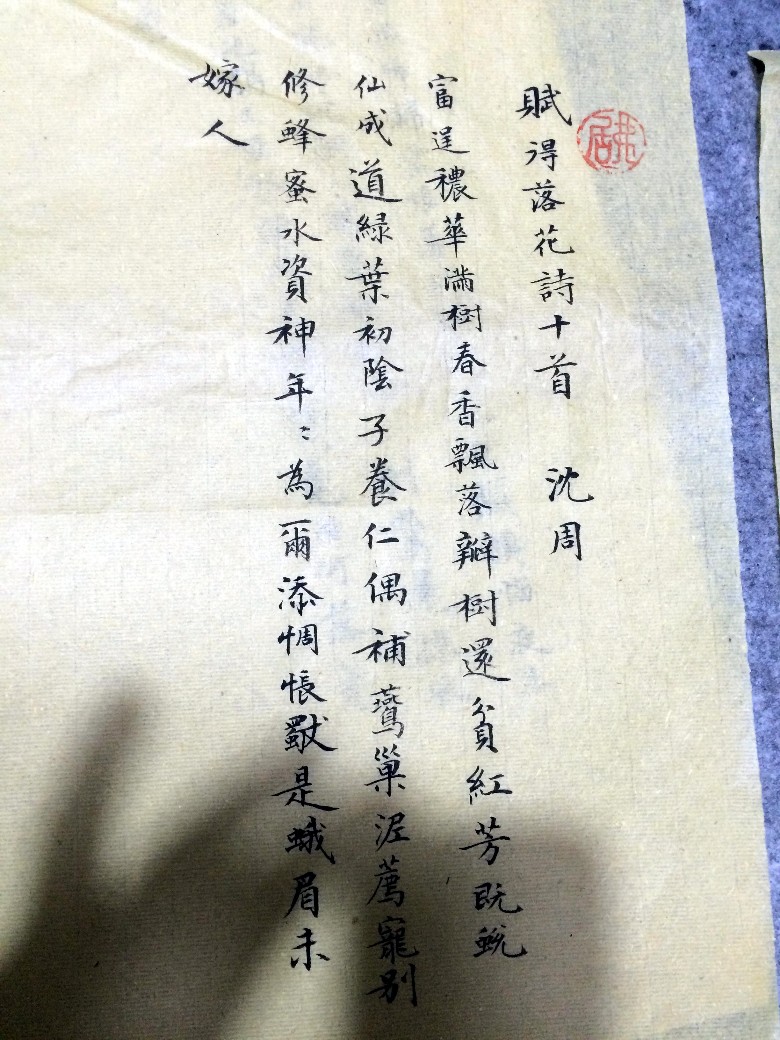 賦得落花詩十首 沈周
富逞穠華滿樹春香飄落瓣樹還貧紅芳既蛻
仙成道綠葉初陰子養仁偶補鶯巢泥薦寵別
修蜂蜜水資神年〻為爾添惆悵獸是蛾眉未
嫁人